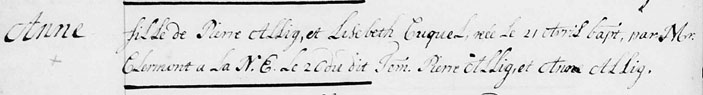 Anne fille de Pierre Allig, et Lisebeth Cuquel, née le 21 Avril bapt. par Mr.
Clermont a la N. E. le 26 du dit Tem. Pierre Allig, et Anne Allig.